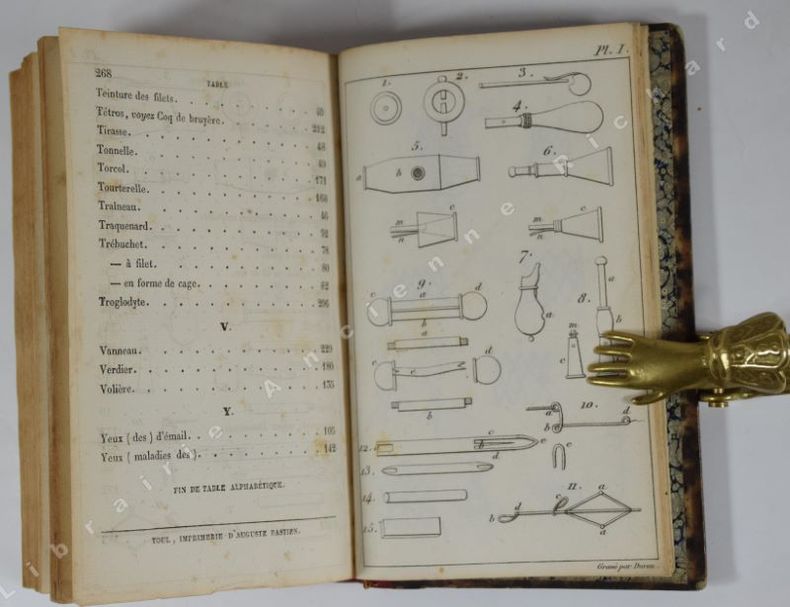 268
TABLE
Teinture des filets. 40
Tétros, voyez Coq de bruyère. 212
Tirasse. 48
Tonnelle. 49
Torcol. 171
Tourterelle. 160
Traîneau. 46
Traquenard. 92
Trébuchet. 78
— à filet. 80
— en forme de cage. 82
Troglodyte. 206
V.
Vanneau. 229
Verdier. 180
Volière. 135
Y.
Yeux ( des ) d'émail. 105
Yeux ( maladies des ). 142
FIN DE TABLE ALPHABÉTIQUE.
TOUL, IMPRIMERIE D'AUGUSTE BASTIEN.
Pl. I.
1. 2. 3.
4.
5. 6.
a b
m c m c
n n
7.
9. 8.
c a d a
b a b
a m
c c d c
b
10.
a d
b
12. c b e c
d
13.
14. 11. a
d c
b
15. a
Gravé par Duron
Librairie Ancienne Richard